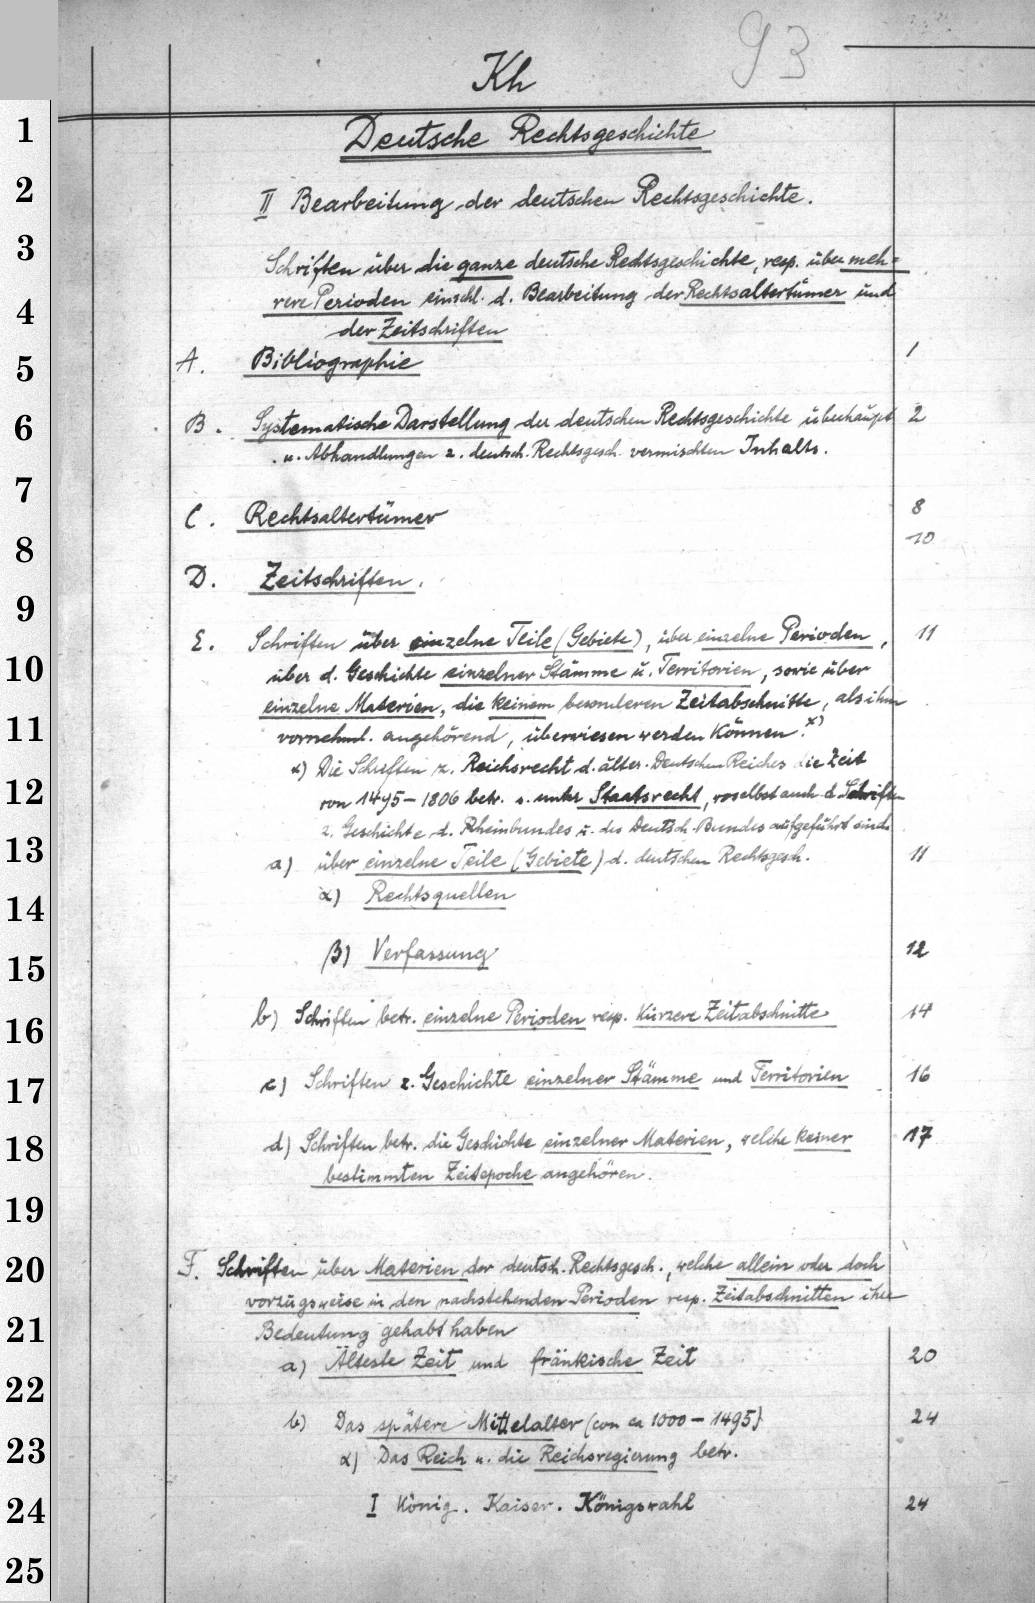 93
Kh
1 Deutsche Rechtsgeschichte
2 II Bearbeitung der deutschen Rechtsgeschichte.
3 Schriften über die ganze deutsche Rechtsgeschichte, resp. über meh-
4 rere Perioden einschl. d. Bearbeitung der Rechtsaltertümer und
der Zeitschriften
5 A. Bibliographie 1
6 B. Systematische Darstellung der deutschen Rechtsgeschichte überhaupt 2
u. Abhandlungen z. deutsch. Rechtsgesch. vermischten Inhalts.
7 C. Rechtsaltertümer 8
8 10
D. Zeitschriften.
9 E. Schriften über einzelne Teile (Gebiete), über einzelne Perioden, 11
10 über d. Geschichte einzelner Stämme u. Territorien, sowie über
einzelne Materien, die keinem besonderen Zeitabschnitte, als ihm
11 vornehml. angehörend, überwiesen werden können. x)
x) Die Schriften z. Reichsrecht d. ält. Deutschen Reiches die Zeit
12 von 1495 - 1806 betr. s. unter Staatsrecht, woselbst auch d. Schriften
z. Geschichte d. Rheinbundes u. des Deutsch. Bundes aufgeführt sind.
13 a) über einzelne Teile (Gebiete) d. deutschen Rechtsgesch. 11
14 α) Rechtsquellen
15 β) Verfassung 12
16 b) Schriften betr. einzelne Perioden resp. kürzere Zeitabschnitte 14
17 c) Schriften z. Geschichte einzelner Stämme und Territorien 16
18 d) Schriften betr. die Geschichte einzelner Materien, welche keiner 17
bestimmten Zeitepoche angehören.
19
20 F. Schriften über Materien der deutsch. Rechtsgesch., welche allein oder doch
vorzugsweise in den nachstehenden Perioden resp. Zeitabschnitten ihre
21 Bedeutung gehabt haben
a) Älteste Zeit und fränkische Zeit 20
22
b) Das spätere Mittelalter (von ca 1000 - 1495) 24
23 α) Das Reich u. die Reichsregierung betr.
24 I König. Kaiser. Königswahl 24
25